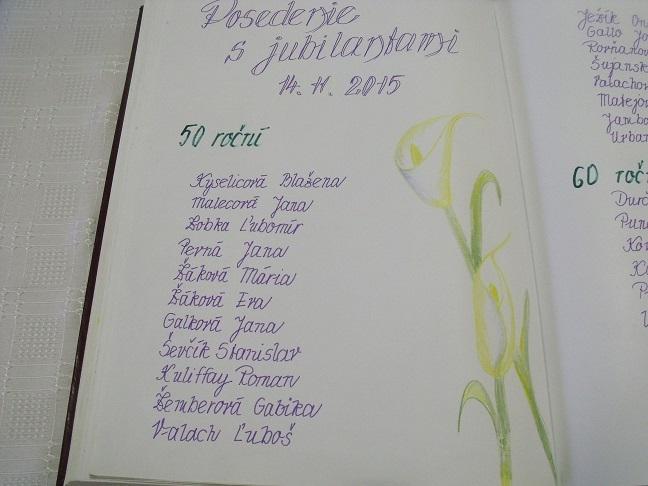 Posedenie
s jubilantami
14. 11. 2015
50 roční
Kyselicová Blažena
Malecová Jana
Žobka Ľubomír
Perná Jana
Žáková Mária
Žáková Eva
Galková Jana
Ševčík Stanislav
Kuliffay Roman
Žemberová Gabika
Valach Ľuboš
Ježík On
Gallo Jo
Korňanov
Šujansk
Valachov
Matejov
Jambo
Urban
60 roč
Durč
Pun
Kov
K
P
V